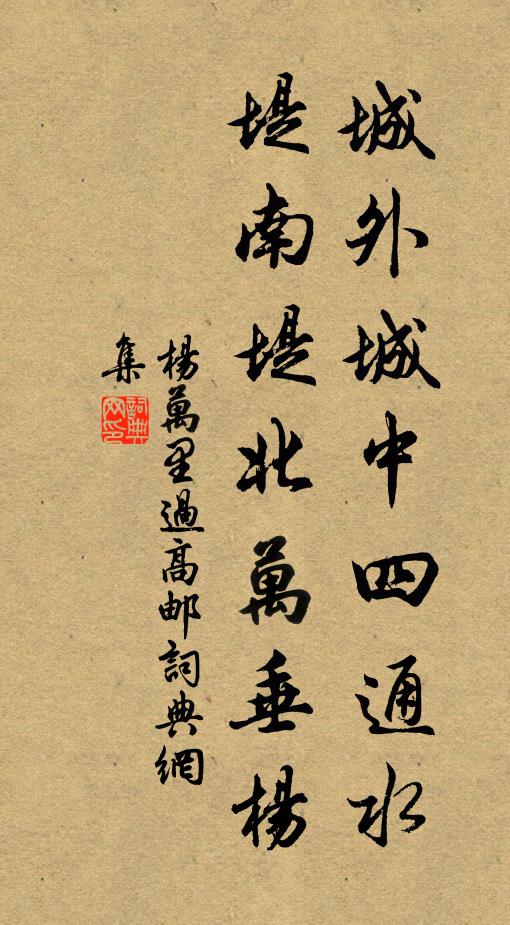 城外城中四通水
堤南堤北萬垂楊
楊萬里過高邮詞典網
集
詞典網印